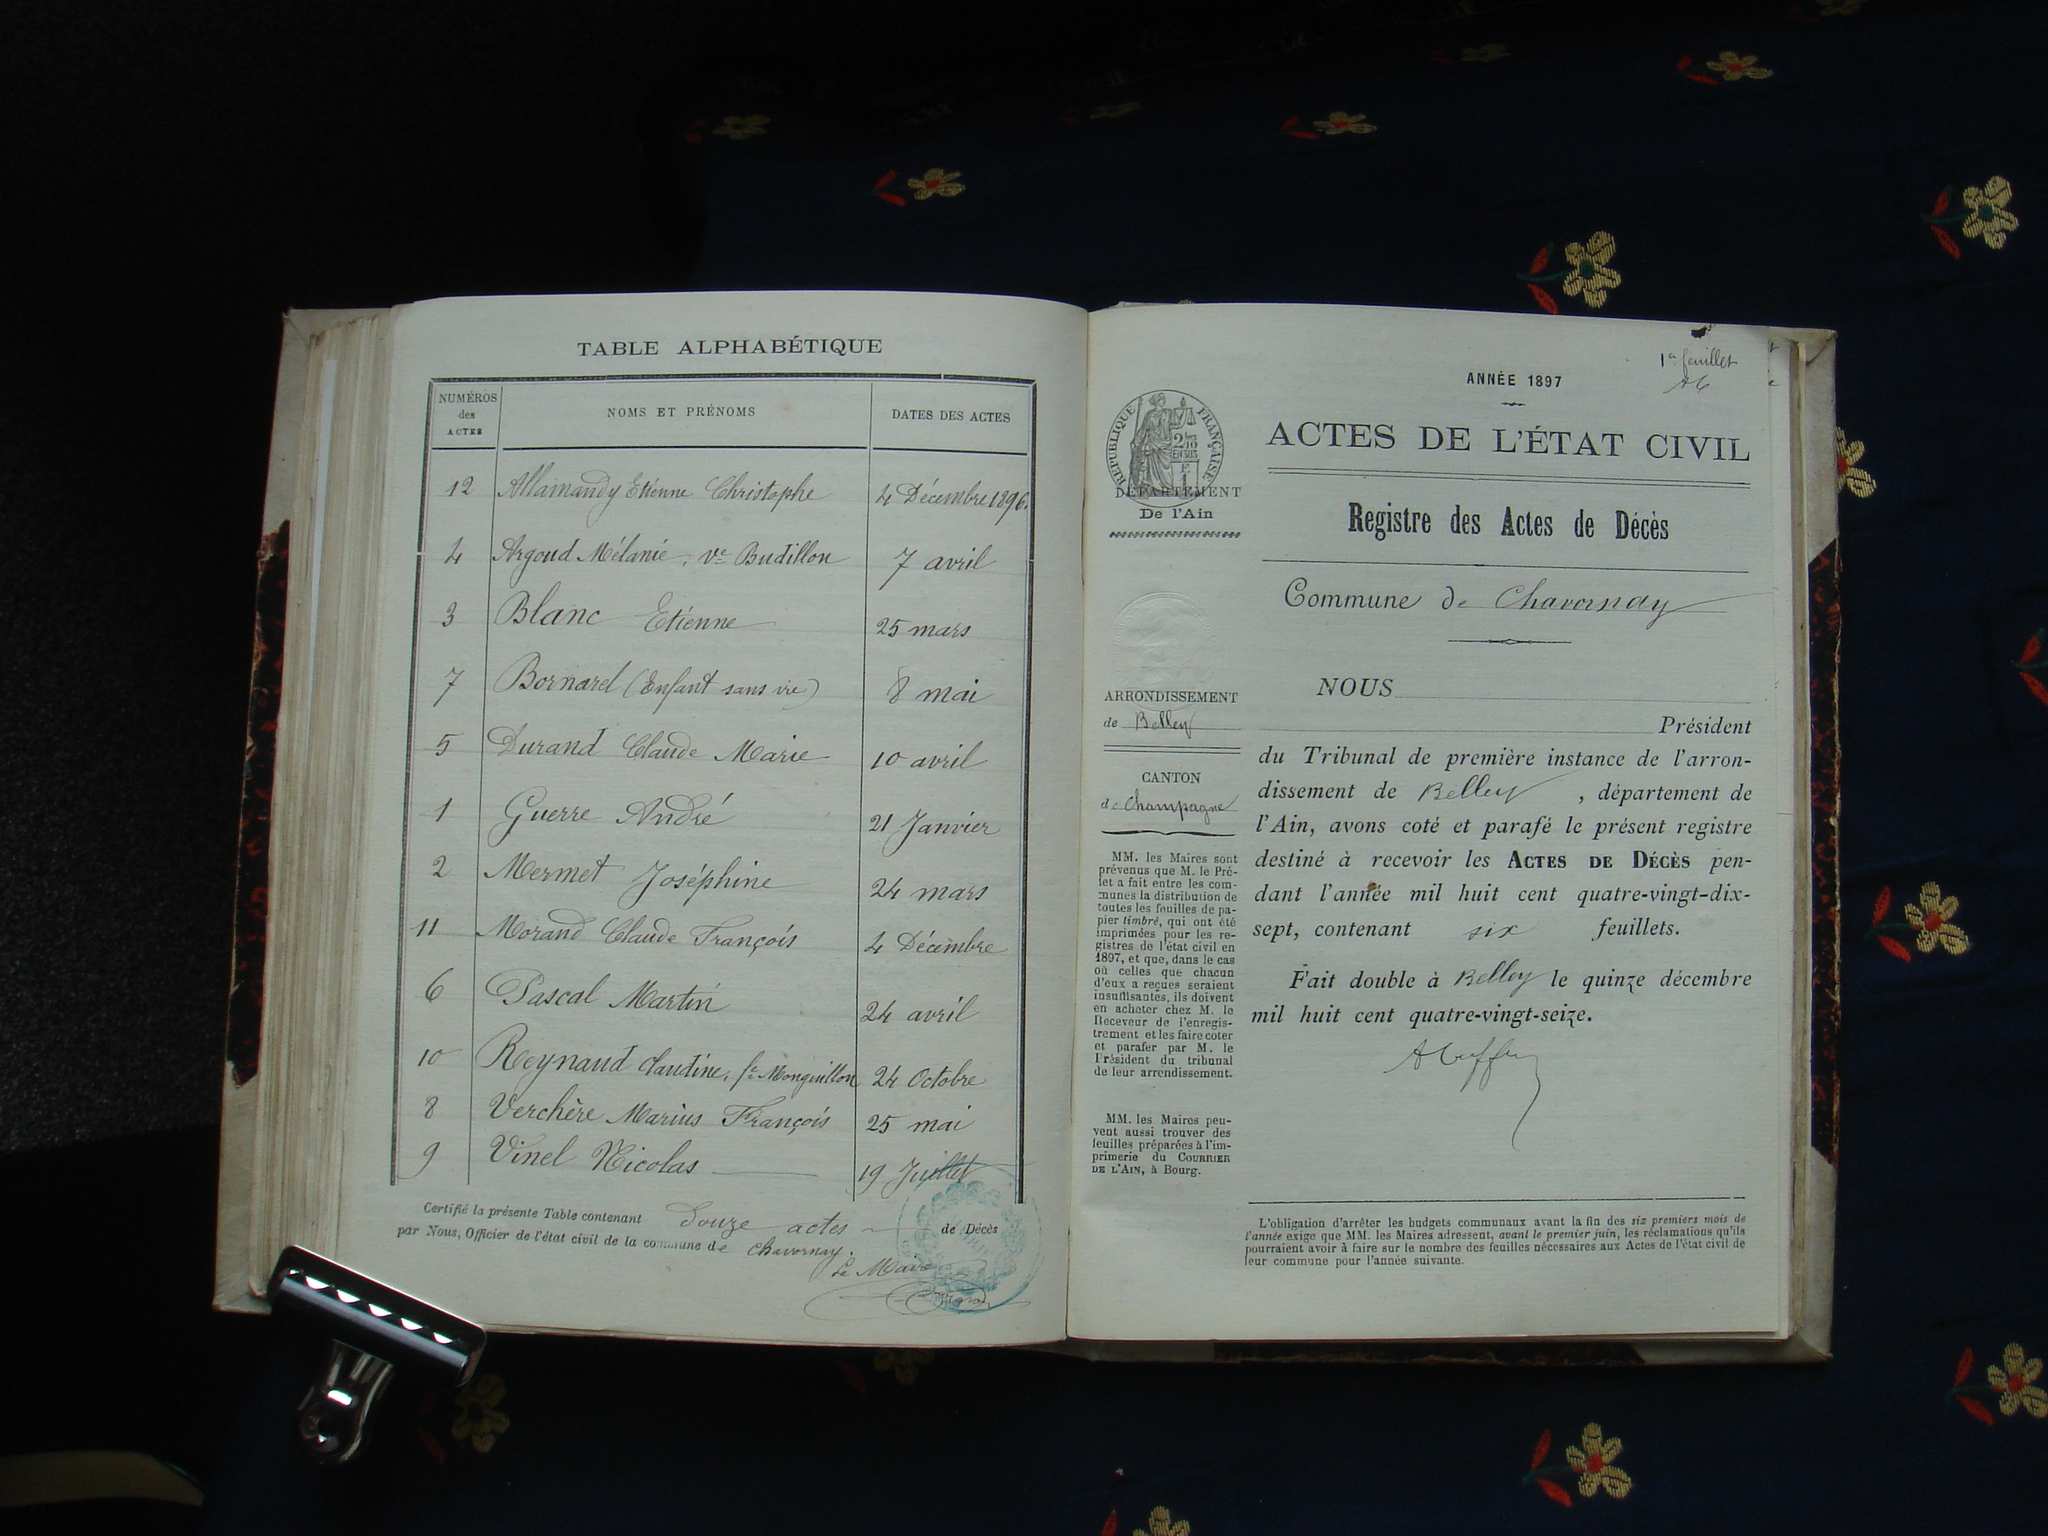 TABLE ALPHABÉTIQUE
NUMÉROS des ACTES NOMS ET PRÉNOMS DATES DES ACTES
12 Allamandy Etienne Christophe 4 Décembre 1896.
4 Argoud Mélanie, Ve Budillon 7 avril
3 Blanc Etienne 25 mars
7 Bornarel (Enfant sans vie) 8 mai
5 Durand Claude Marie 10 avril
1 Guerre André 21 Janvier
2 Mermet Joséphine 24 mars
11 Morand Claude François 4 Décembre
6 Pascal Martin 24 avril
10 Reynaud Claudine, fe Monguillon 24 Octobre
8 Verchère Marius François 25 mai
9 Vinel Nicolas 19 Juillet
Certifié la présente Table contenant douze actes de Décès
par Nous, Officier de l'état civil de la commune de Chavornay.
Le Maire
1er feuillet
ANNÉE 1897
ACTES DE L'ÉTAT CIVIL
RÉPUBLIQUE FRANÇAISE
DÉPARTEMENT
De l'Ain
Registre des Actes de Décès
Commune de Chavornay
ARRONDISSEMENT
de Belley
CANTON
de Champagne
MM. les Maires sont
prévenus que M. le Pré-
let a fait entre les com-
munes la distribution de
toutes les feuilles de pa-
pier timbré, qui ont été
imprimées pour les re-
gistres de l'état civil en
1897, et que, dans le cas
où celles que chacun
d'eux a reçues seraient
insuffisantes, ils doivent
en acheter chez M. le
Receveur de l'enregis-
trement et les faire coter
et parafer par M. le
Président du tribunal
de leur arrondissement.
MM. les Maires peu-
vent aussi trouver des
feuilles préparées à l'im-
primerie du COURRIER
DE L'AIN, à Bourg.
NOUS
Président
du Tribunal de première instance de l'arron-
dissement de Belley, département de
l'Ain, avons coté et parafé le présent registre
destiné à recevoir les ACTES DE DÉCÈS pen-
dant l'année mil huit cent quatre-vingt-dix-
sept, contenant six feuillets.
Fait double à Belley le quinze décembre
mil huit cent quatre-vingt-seize.
L'obligation d'arrêter les budgets communaux avant la fin des six premiers mois de
l'année exige que MM. les Maires adressent, avant le premier juin, les réclamations qu'ils
pourraient avoir à faire sur le nombre des feuilles nécessaires aux Actes de l'état civil de
leur commune pour l'année suivante.